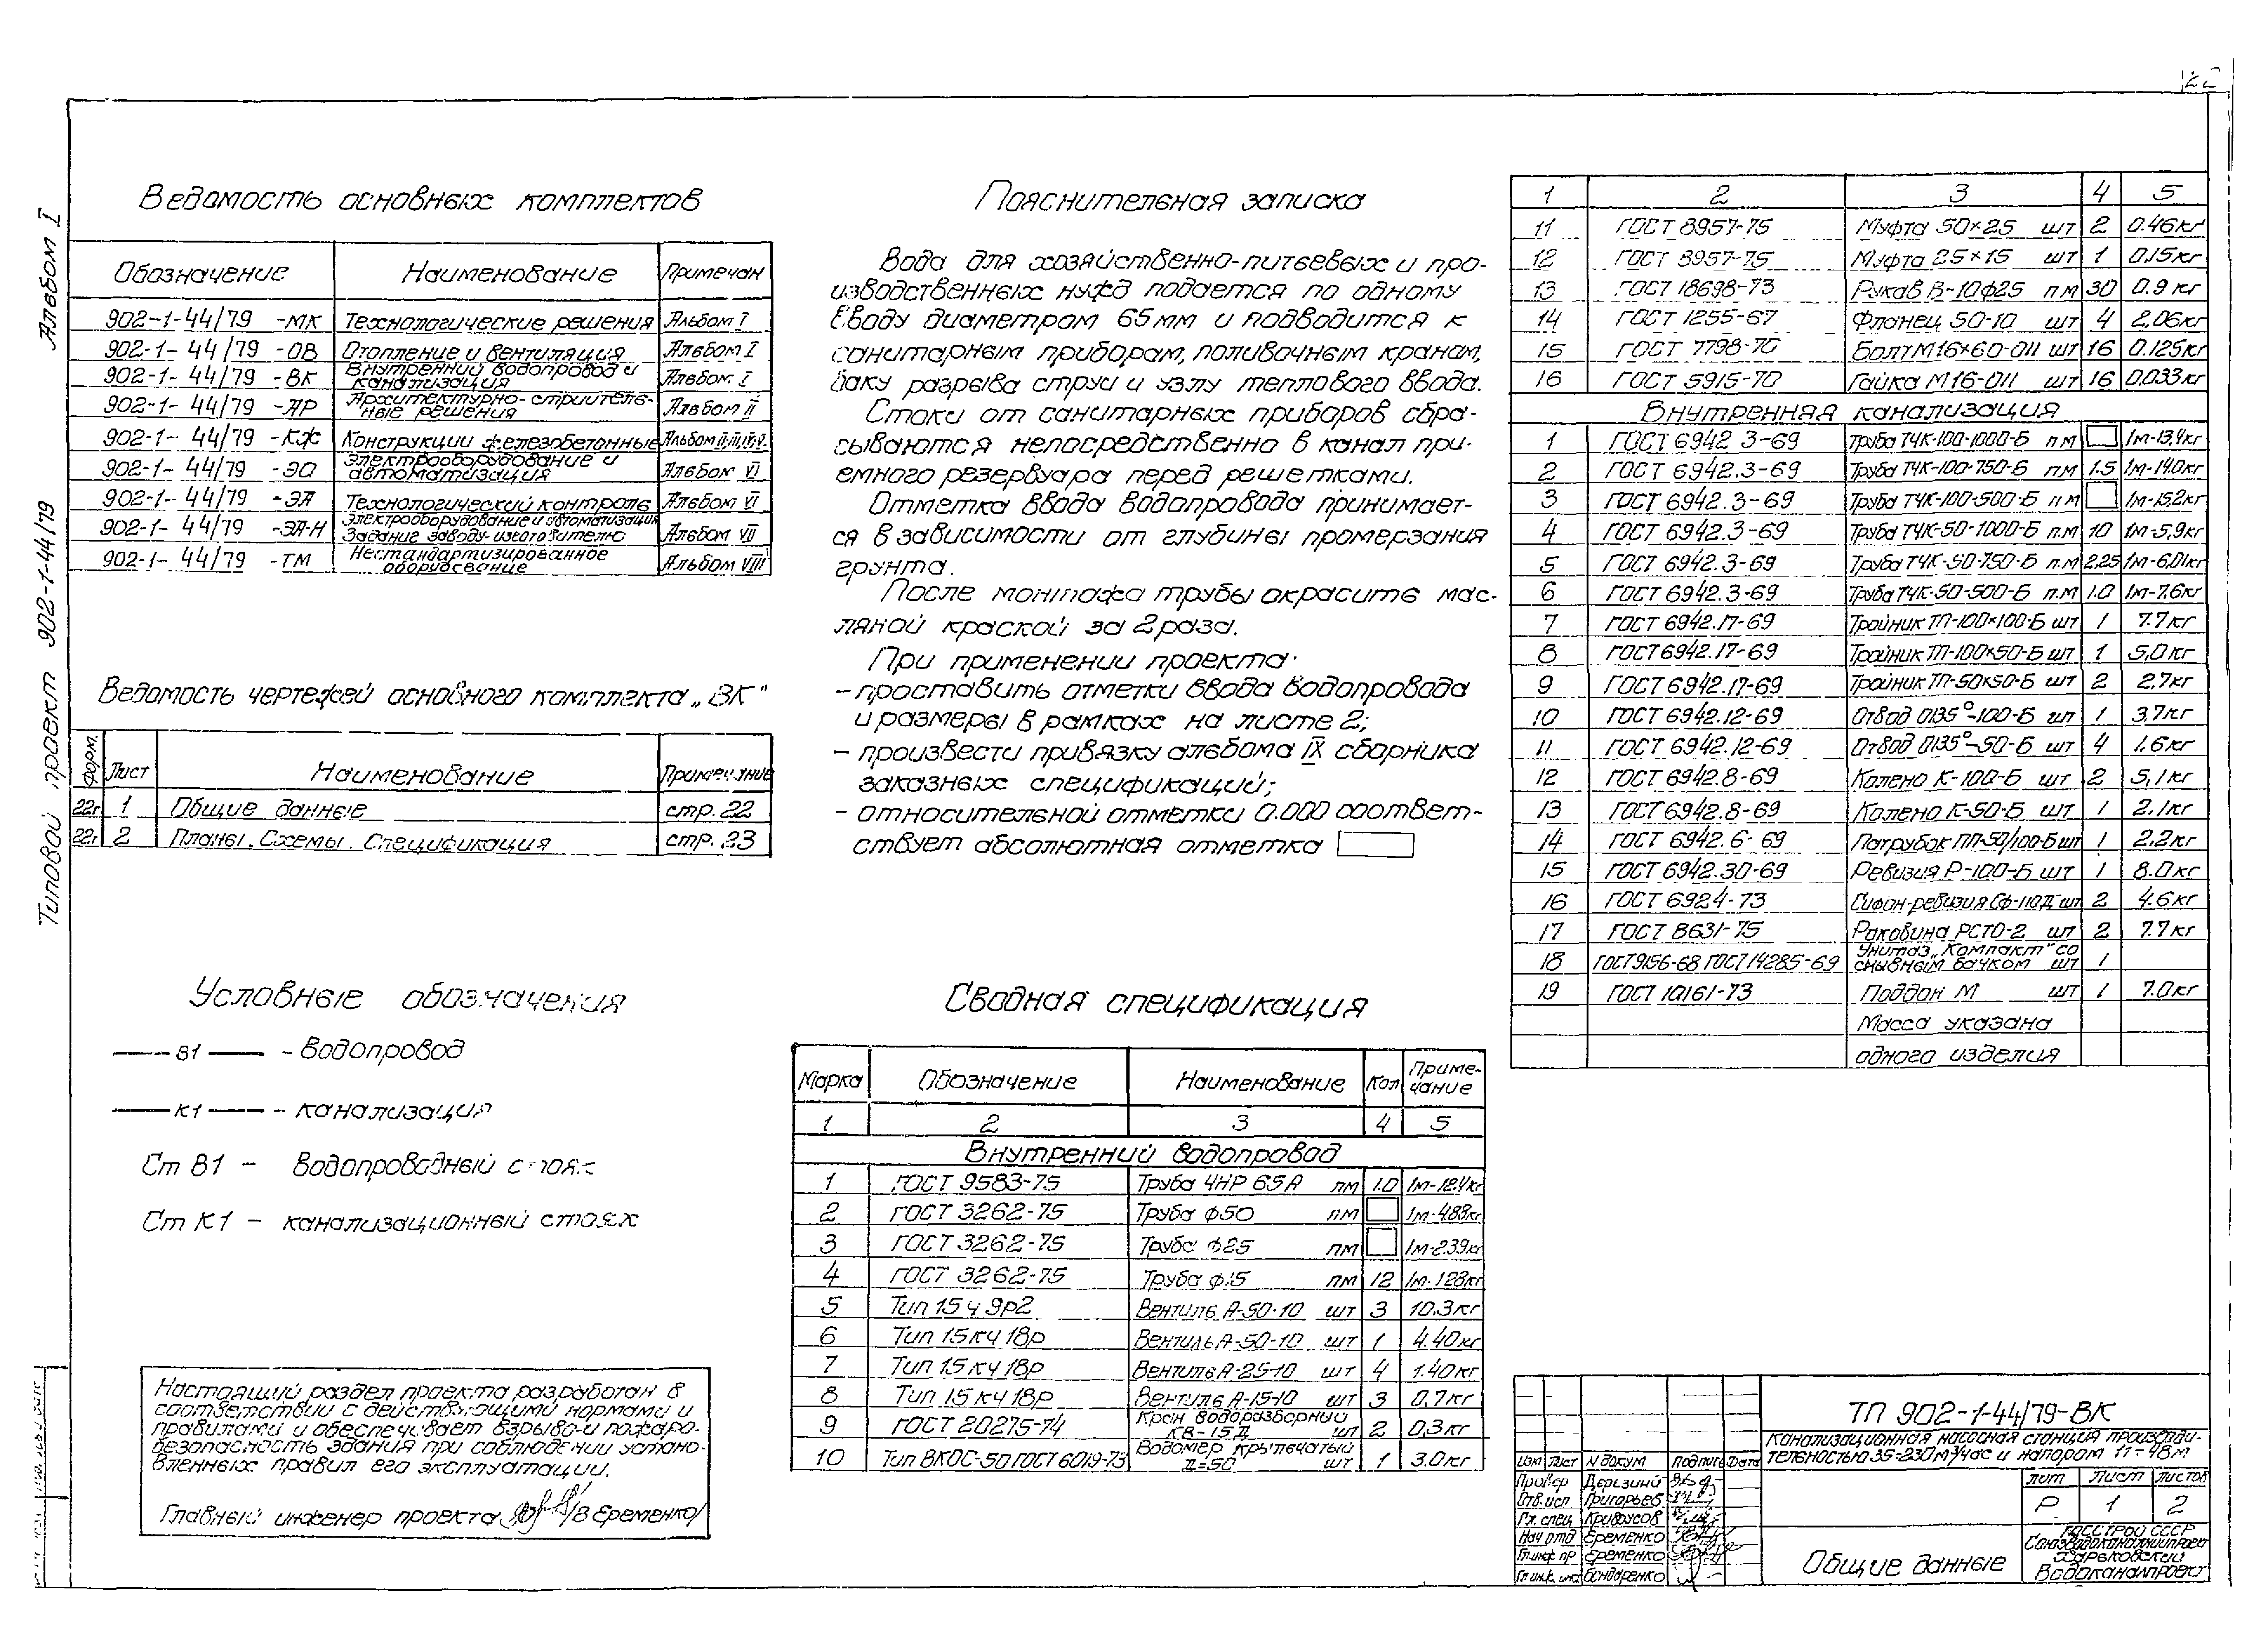 22
Альбом I
Типовой проект 902-1-44/79
Ведомость основных комплектов
Обозначение Наименование Примечан
902-1-44/79 -МК Технологические решения Альбом I
902-1-44/79 -ОВ Отопление и вентиляция Альбом I
902-1-44/79 -ВК Внутренний водопровод и канализация Альбом I
902-1-44/79 -АР Архитектурно-строительные решения Альбом II
902-1-44/79 -КЖ Конструкции железобетонные Альбом II,III,IV,V.
902-1-44/79 -ЭО Электрооборудование и автоматизация Альбом VI
902-1-44/79 -ЭА Технологический контроль Альбом VI
902-1-44/79 -ЭА-Н Электрооборудование и автоматизация Задание заводу-изготовителю Альбом VII
902-1-44/79 -ТМ Нестандартизированное оборудование Альбом VIII
Ведомость чертежей основного комплекта „ВК"
Форм. Лист Наименование Примечание
22г 1 Общие данные стр. 22
22г 2 Планы. Схемы. Спецификация стр. 23
Условные обозначения
В1 - водопровод
К1 - канализация
Ст В1 - водопроводный стояк
Ст К1 - канализационный стояк
Настоящий раздел проекта разработан в
соответствии с действующими нормами и
правилами и обеспечивает взрыво-и пожаро-
безопасность здания при соблюдении устано-
вленных правил его эксплуатации.
Главный инженер проекта /В Еременко/
Пояснительная записка
Вода для хозяйственно-питьевых и про-
изводственных нужд подается по одному
вводу диаметром 65мм и подводится к
санитарным приборам, поливочным кранам,
баку разрыва струи и узлу теплового ввода.
Стоки от санитарных приборов сбра-
сываются непосредственно в канал при-
емного резервуара перед решетками.
Отметка ввода водопровода принимает-
ся в зависимости от глубины промерзания
грунта.
После монтажа трубы окрасить мас-
ляной краской за 2 раза.
При применении проекта:
- проставить отметки ввода водопровода
и размеры в рамках на листе 2;
- произвести привязку альбома IX сборника
заказных спецификаций;
- относительной отметки 0.000 соответ-
ствует абсолютная отметка
Сводная спецификация
Марка Обозначение Наименование Кол Приме-чание
1 2 3 4 5
Внутренний водопровод
1 ГОСТ 9583-75 Труба ЧНР 65А пм 1.0 1м-12.4кг
2 ГОСТ 3262-75 Труба ф50 пм 1м-4.88кг
3 ГОСТ 3262-75 Труба ф25 пм 1м-2.39кг
4 ГОСТ 3262-75 Труба ф15 пм 12 1м-1.28кг
5 Тип 15ч 9р2 Вентиль А-50-10 шт 3 10.3кг
6 Тип 15кч 18р Вентиль А-50-10 шт 1 4.40кг
7 Тип 15кч 18р Вентиль А-25-10 шт 4 1.40кг
8 Тип 15кч 18р Вентиль А-15-10 шт 3 0,7кг
9 ГОСТ 20275-74 Кран водоразборный КВ-15Д шт 2 0,3кг
10 Тип ВКОС-50 ГОСТ 6019-73 Водомер крыльчатый Д=50 шт 1 3.0кг
1 2 3 4 5
11 ГОСТ 8957-75 Муфта 50×25 шт 2 0.46кг
12 ГОСТ 8957-75 Муфта 25×15 шт 1 0.15кг
13 ГОСТ 18698-73 Рукав В-10ф25 пм 30 0.9 кг
14 ГОСТ 1255-67 Фланец 50-10 шт 4 2,06кг
15 ГОСТ 7798-70 Болт М16×60-011 шт 16 0.125кг
16 ГОСТ 5915-70 Гайка М16-011 шт 16 0,033кг
Внутренняя канализация
1 ГОСТ 6942 3-69 Труба ТЧК-100-1000-Б пм 1м-13,4кг
2 ГОСТ 6942.3-69 Труба ТЧК-100-750-Б пм 1.5 1м-14.0кг
3 ГОСТ 6942.3-69 Труба ТЧК-100-500-Б пм 1м-15,2кг
4 ГОСТ 6942.3-69 Труба ТЧК-50-1000-Б п.м 10 1м-5,9кг
5 ГОСТ 6942.3-69 Труба ТЧК-50-750-Б п.м 2,25 1м-6.01кг
6 ГОСТ 6942.3-69 Труба ТЧК-50-500-Б п.м 1.0 1м-7.6кг
7 ГОСТ 6942.17-69 Тройник ТП-100×100-Б шт 1 7.7кг
8 ГОСТ 6942.17-69 Тройник ТП-100×50-Б шт 1 5,0кг
9 ГОСТ 6942.17-69 Тройник ТП-50×50-Б шт 2 2,7кг
10 ГОСТ 6942.12-69 Отвод О135°-100-Б шт 1 3,7кг
11 ГОСТ 6942.12-69 Отвод О135°-50-Б шт 4 1.6кг
12 ГОСТ 6942.8-69 Колено К-100-Б шт 2 5,1кг
13 ГОСТ 6942.8-69 Колено К-50-Б шт 1 2.1кг
14 ГОСТ 6942.6-69 Патрубок ПП-50/100-Б шт 1 2,2кг
15 ГОСТ 6942.30-69 Ревизия Р-100-Б шт 1 8.0кг
16 ГОСТ 6924-73 Сифон-ревизия Сф-110Д шт 2 4.6кг
17 ГОСТ 8631-75 Раковина РСТО-2 шт 2 7.7кг
18 ГОСТ 9156-68 ГОСТ 14285-69 Унитаз „Компакт" со смывным бачком шт 1
19 ГОСТ 10161-73 Поддон М шт 1 7.0кг
Масса указана
одного изделия
ТП 902-1-44/79-ВК
Канализационная насосная станция производи-
тельностью 35-230м³/час и напором 11-48м
Изм Лист N докум Подпись Дата
Провер Дерезний
Отв.исп Григорьев
Гл. спец Кривоусов
Нач отд Еременко
Гл.инж.пр Еременко
Гл инж. Бондаренко
Лит Лист Листов
Р 1 2
Общие данные
ГОССТРОЙ СССР
Союзводоканалниипроект
Харьковский
Водоканалпроект